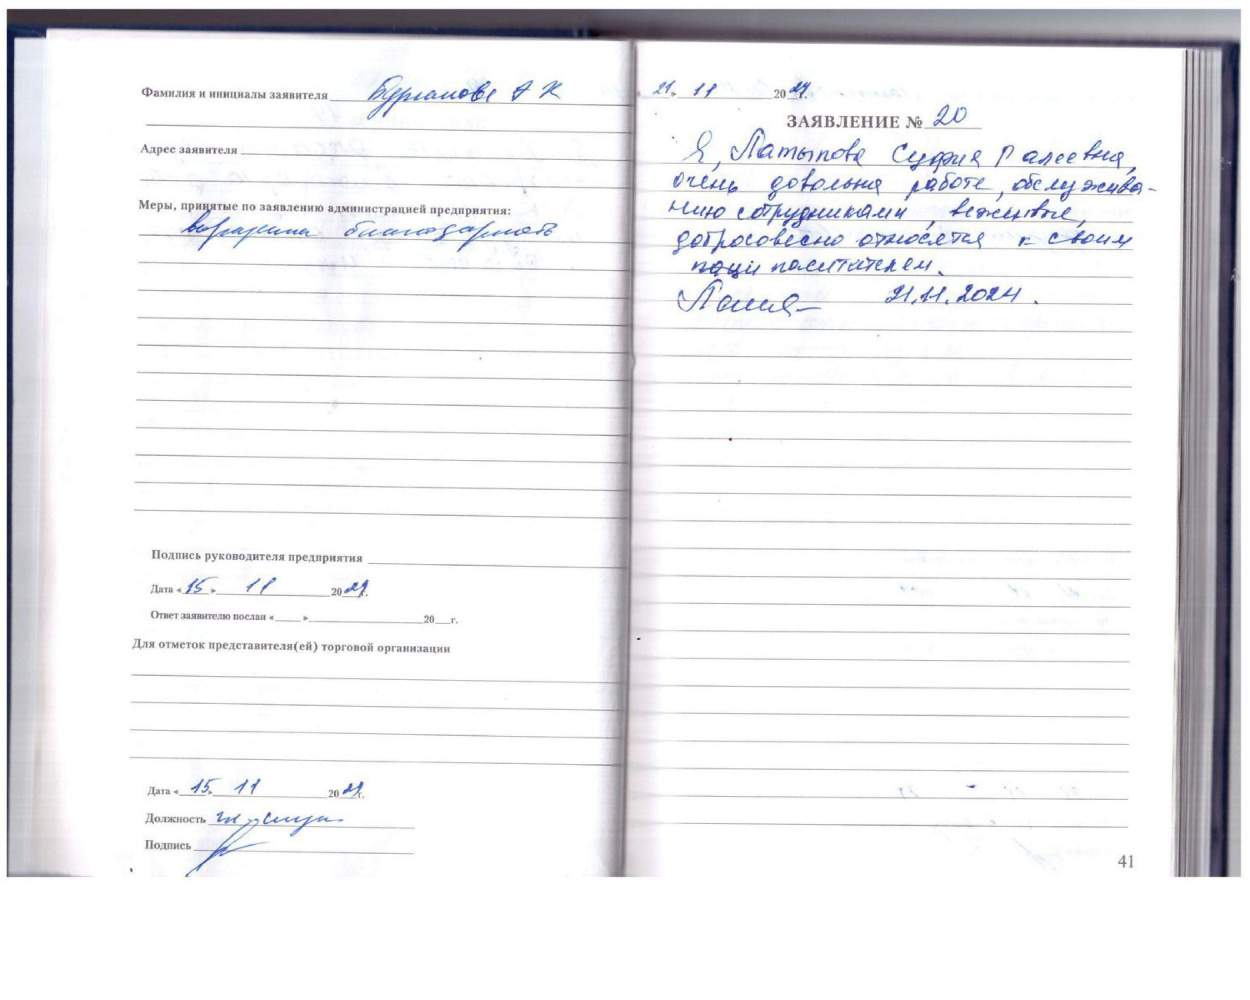 Фамилия и инициалы заявителя Бурганова А К
Адрес заявителя
Меры, принятые по заявлению администрацией предприятия:
выражена благодарность
Подпись руководителя предприятия
Дата «15» 11 2024г.
Ответ заявителю послан «    »    20    г.
Для отметок представителя(ей) торговой организации
Дата «15» 11 2024г.
Должность
Подпись
21» 11 2024г.
ЗАЯВЛЕНИЕ № 20
Я, Латыпова Суфия Раисовна,
очень довольна работе, обслужива-
нию сотрудниками, вежливые,
добросовесно относятся к своим
паци паситителем.
21.11.2024.
41